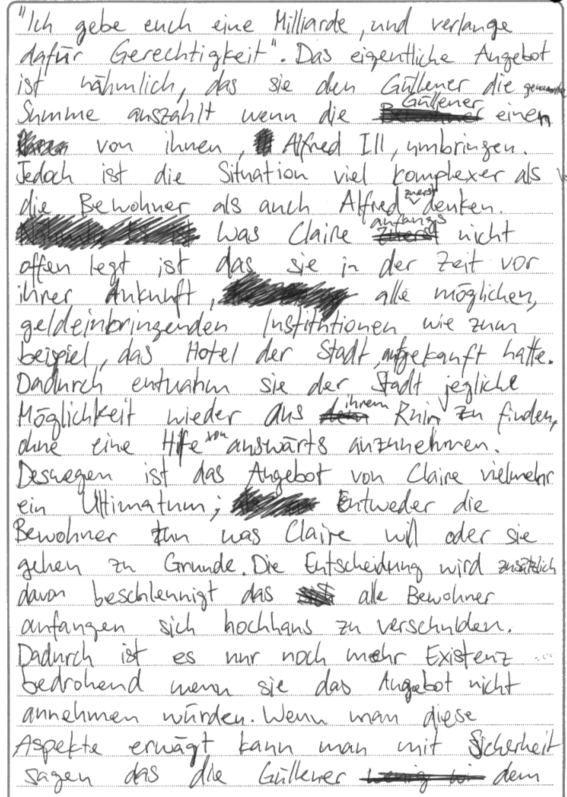 "Ich gebe euch eine Milliarde, und verlange
dafür Gerechtigkeit". Das eigentliche Angebot
ist nähmlich, das sie den Güllener die
Summe auszahlt wenn die Güllener einen
von ihnen, Alfred Ill, umbringen.
Jedoch ist die Situation viel komplexer als
die Bewohner als auch Alfred zuerst denken.
Was Claire anfangs nicht
offen legt ist das sie in der Zeit vor
ihrer Ankunft, alle möglichen,
geldeinbringenden Institutionen wie zum
beispiel, das Hotel der Stadt, aufgekauft hatte.
Dadurch entnahm sie der Stadt jegliche
Möglichkeit wieder aus ihrem Ruin zu finden,
ohne eine Hilfe von auswärts anzunehmen.
Deswegen ist das Angebot von Claire vielmehr
ein Ultimatum; Entweder die
Bewohner tun was Claire will oder sie
gehen zu Grunde. Die Entscheidung wird zusätzlich
davon beschleunigt das alle Bewohner
anfangen sich hochhaus zu verschulden.
Dadurch ist es nur noch mehr Existenz
bedrohend wenn sie das Angebot nicht
annehmen würden. Wenn man diese
Aspekte erwägt kann man mit Sicherheit
sagen das die Güllener dem